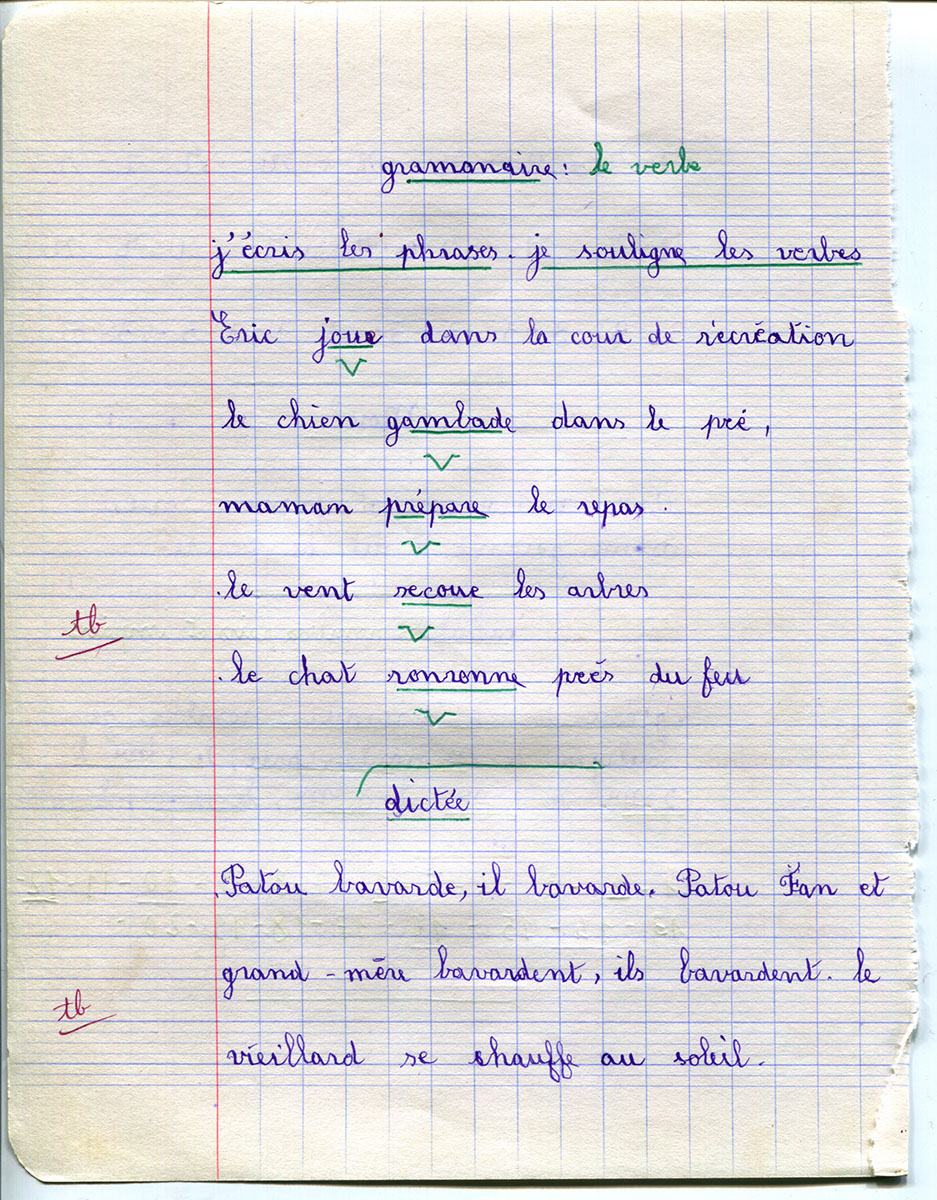 grammaire : le verbe
j'écris les phrases. je souligne les verbes
Eric joue dans la cour de récréation
V
le chien gambade dans le pré,
V
maman prépare le repas.
V
.le vent secoue les arbres
tb
V
.le chat ronronne près du feu
V
dictée
.Patou bavarde, il bavarde. Patou Fan et
grand-mère bavardent, ils bavardent. le
tb
vieillard se chauffe au soleil.